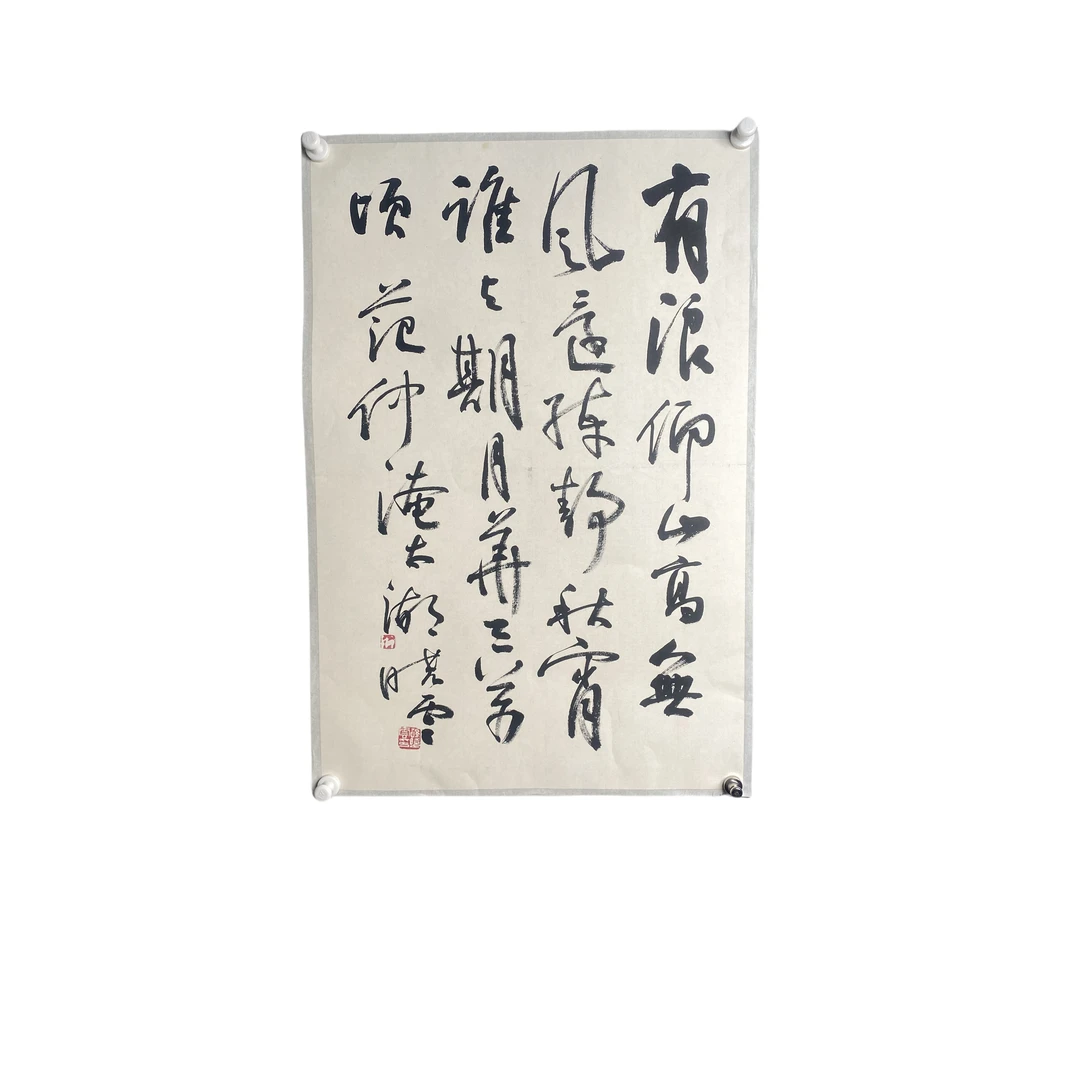 有浪仰山高無
風還練靜秋宵
誰與期月華三萬
頃 范仲淹太湖 曉雲